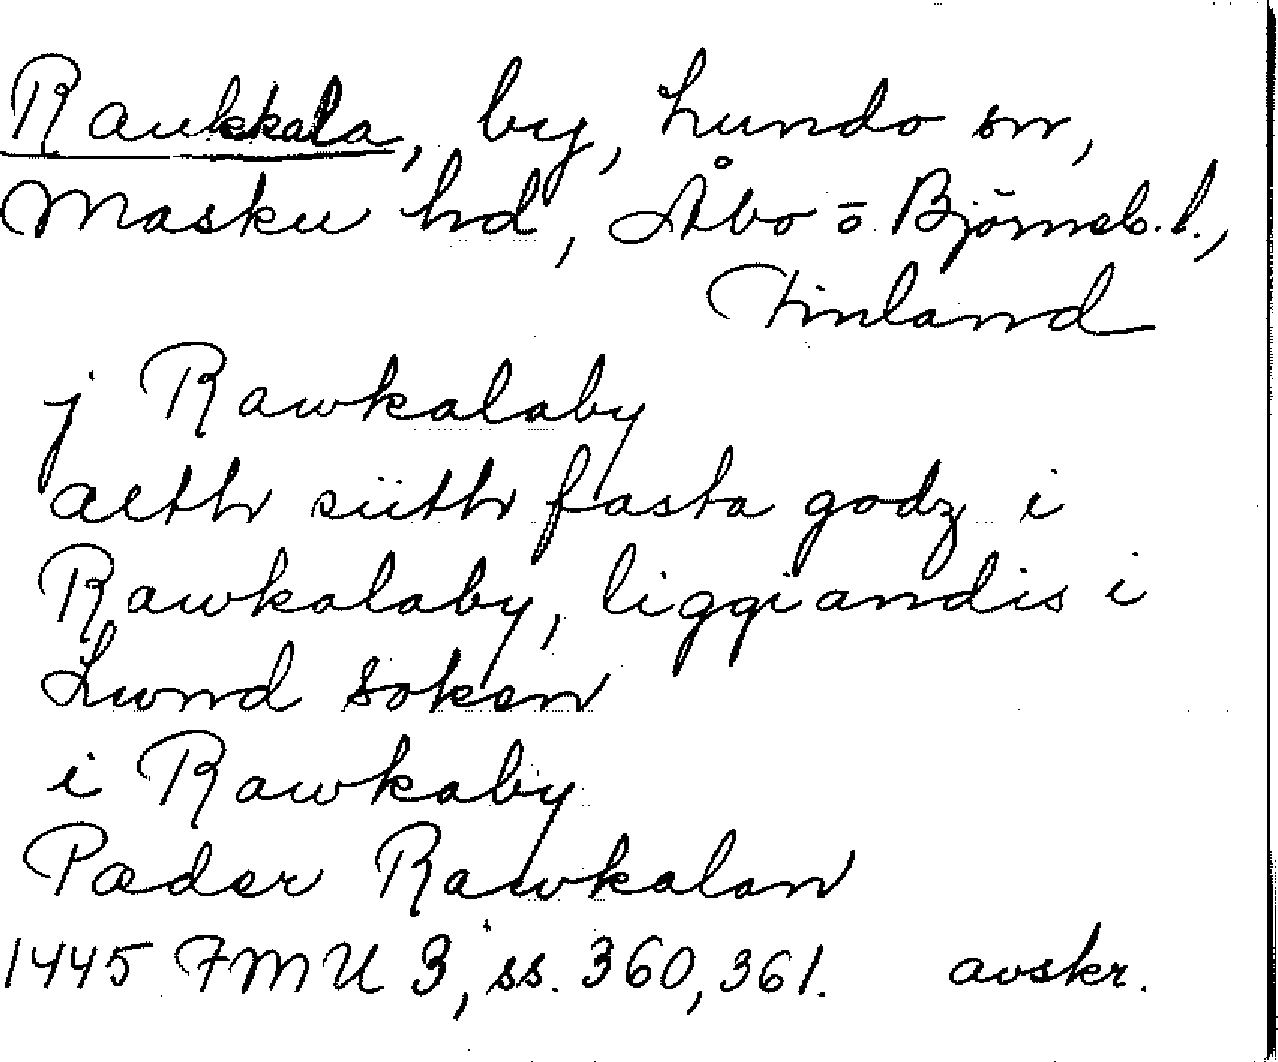 Raukkala, by, Lundo sn,
Masku hd, Åbo o. Björneb. l.,
Finland
j Rawkalaby
alth siith fasta godz i
Rawkalaby, liggiandis i
Lwnd soken
i Rawkaby
Pæder Rawkalan
1445 FMU 3, ss. 360, 361. avskr.